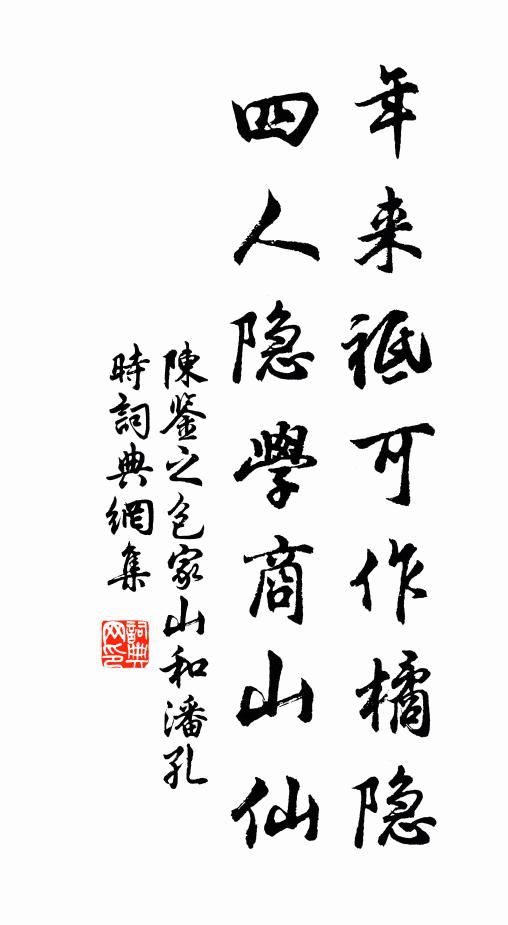 年来祗可作橘隐
四人隐學商山仙
陳鉴之包家山和潘孔
時詞典網集
詞典
网印